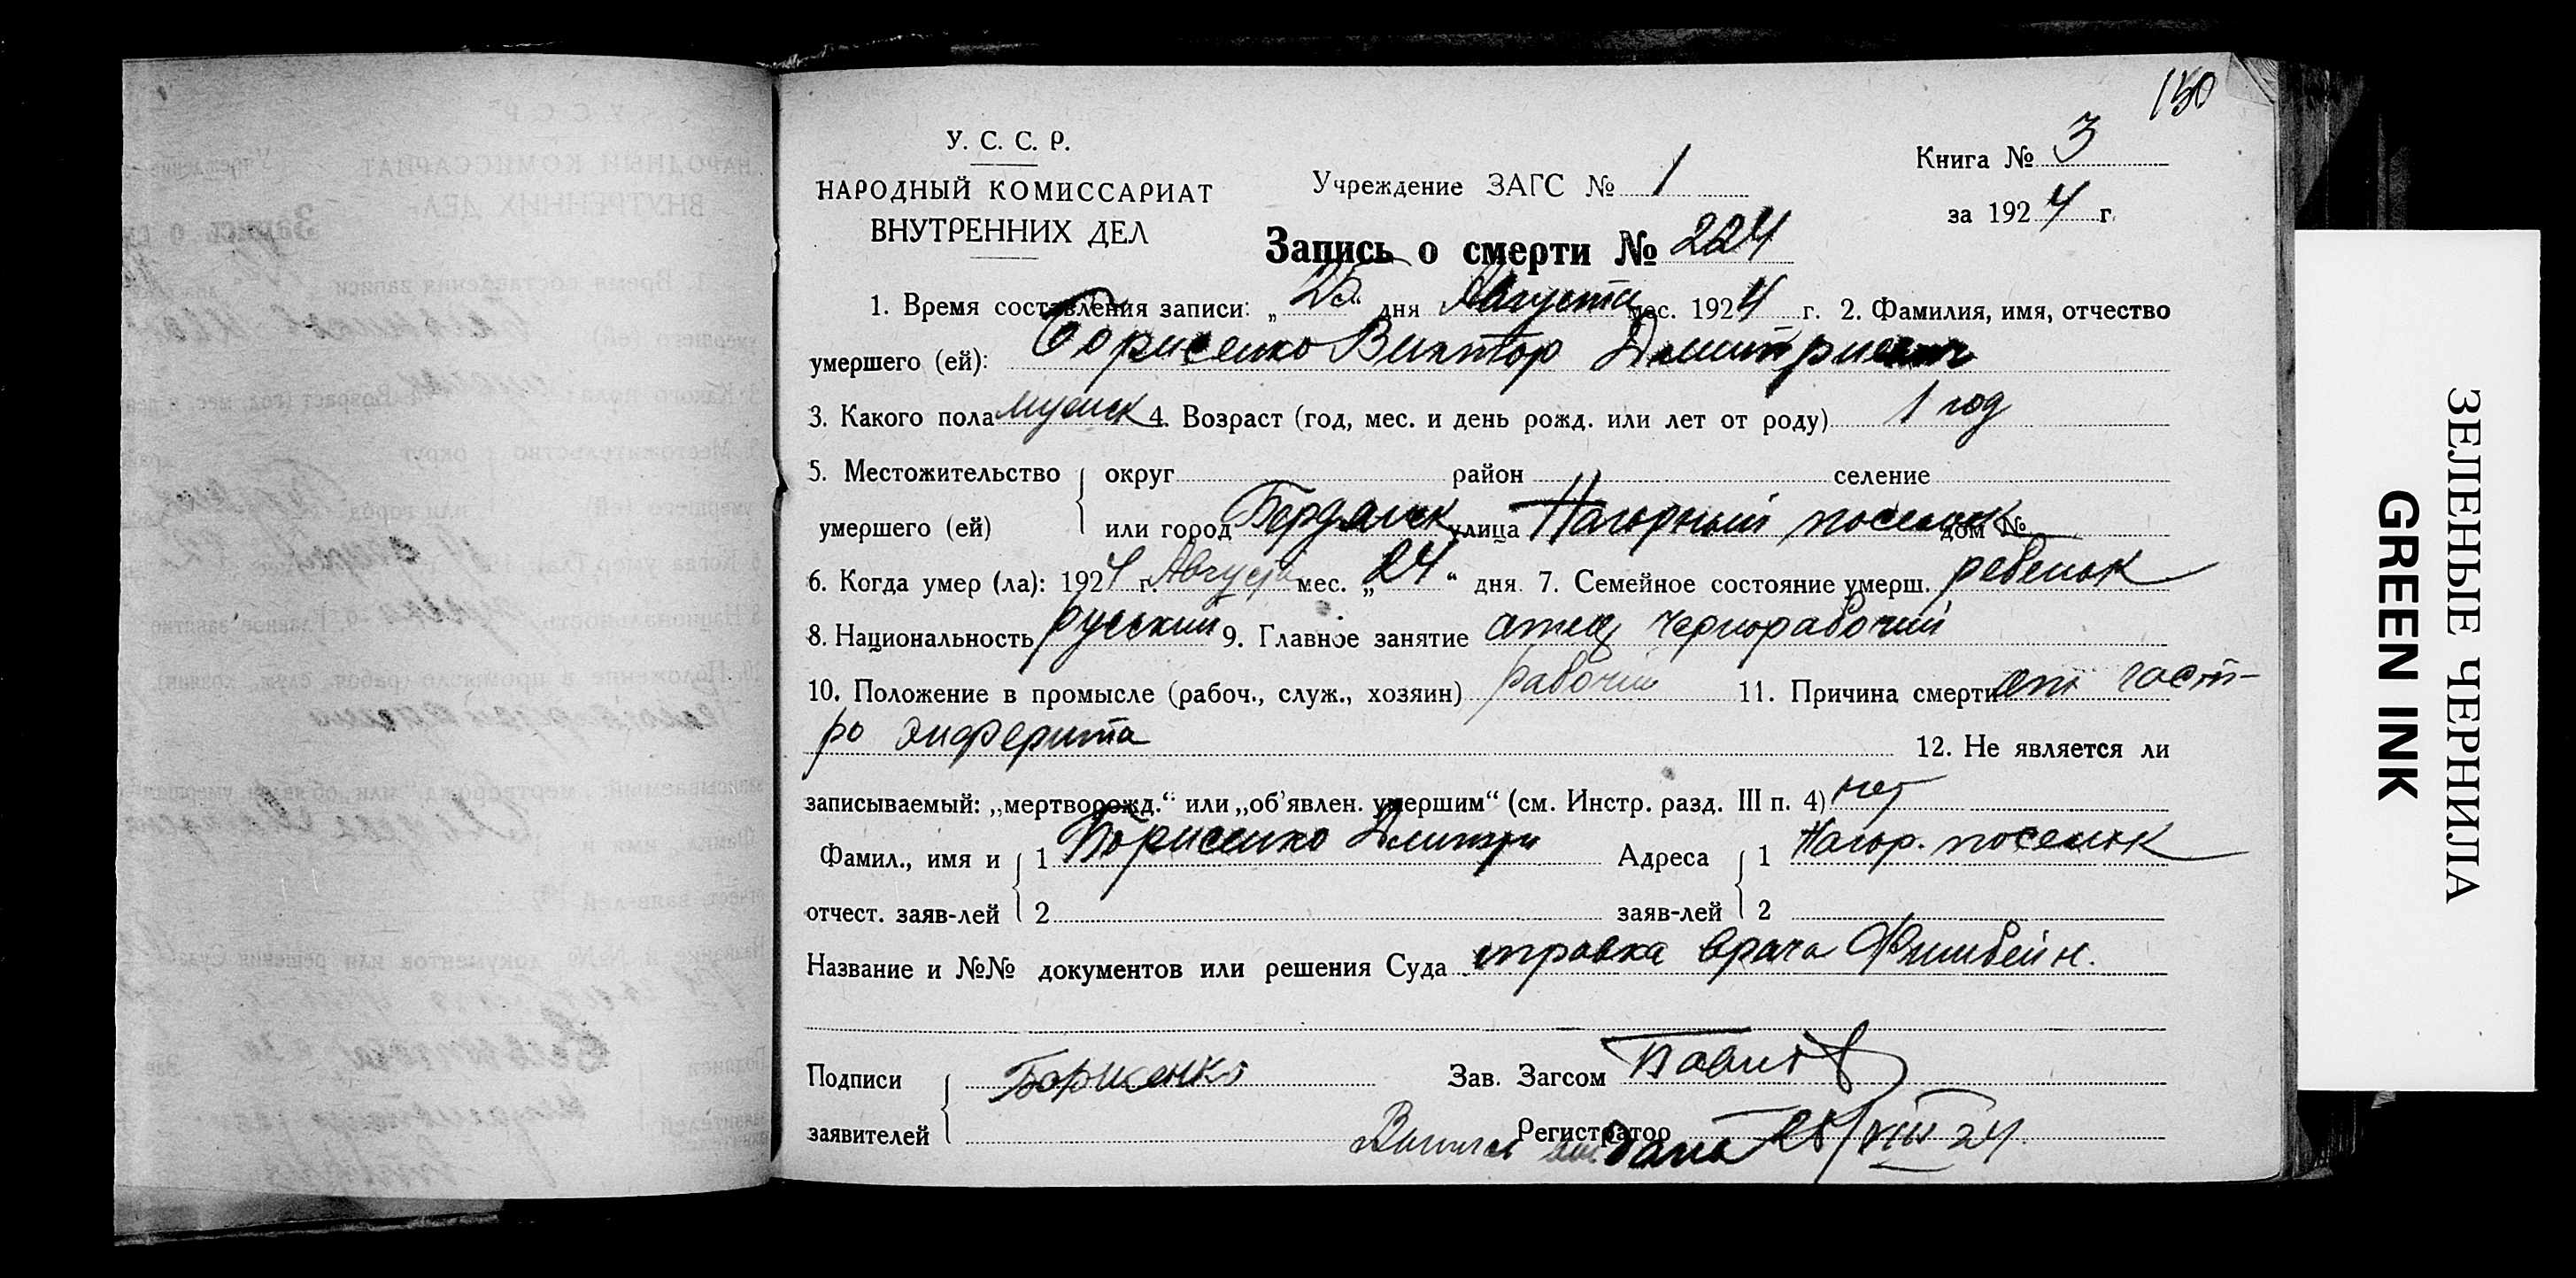 150
У. С. С. Р.
НАРОДНЫЙ КОМИССАРИАТ
ВНУТРЕННИХ ДЕЛ
Учреждение ЗАГС № 1
Книга № 3
за 1924 г.
Запись о смерти № 224
1. Время составления записи: „25“ дня Августа мес. 1924 г. 2. Фамилия, имя, отчество
умершего (ей): Борисенко Виктор Дмитриевич
3. Какого пола мужск 4. Возраст (год, мес. и день рожд. или лет от роду) 1 год
5. Местожительство округ район селение
умершего (ей) или город Бердянск улица Нагорный поселок дом №
6. Когда умер (ла): 1924 г. Августа мес. „24“ дня 7. Семейное состояние умерш. ребенок
8. Национальность русский 9. Главное занятие отец чернорабочий
10. Положение в промысле (рабоч., служ., хозяин) рабочий 11. Причина смерти от гаст-
ро энферита 12. Не является ли
записываемый: „мертворожд.“ или „об’явлен. умершим“ (см. Инстр. разд. III п. 4) нет
Фамил., имя и 1 Борисенко Дмитри Адреса 1 Нагор. поселок
отчест. заяв-лей 2 заяв-лей 2
Название и №№ документов или решения Суда справка врача Фишбейн.
Подписи Борисенко Зав. Загсом
заявителей Регистратор
дана 25/VIII 24
ЗЕЛЕНЫЕ ЧЕРНИЛА
GREEN INK